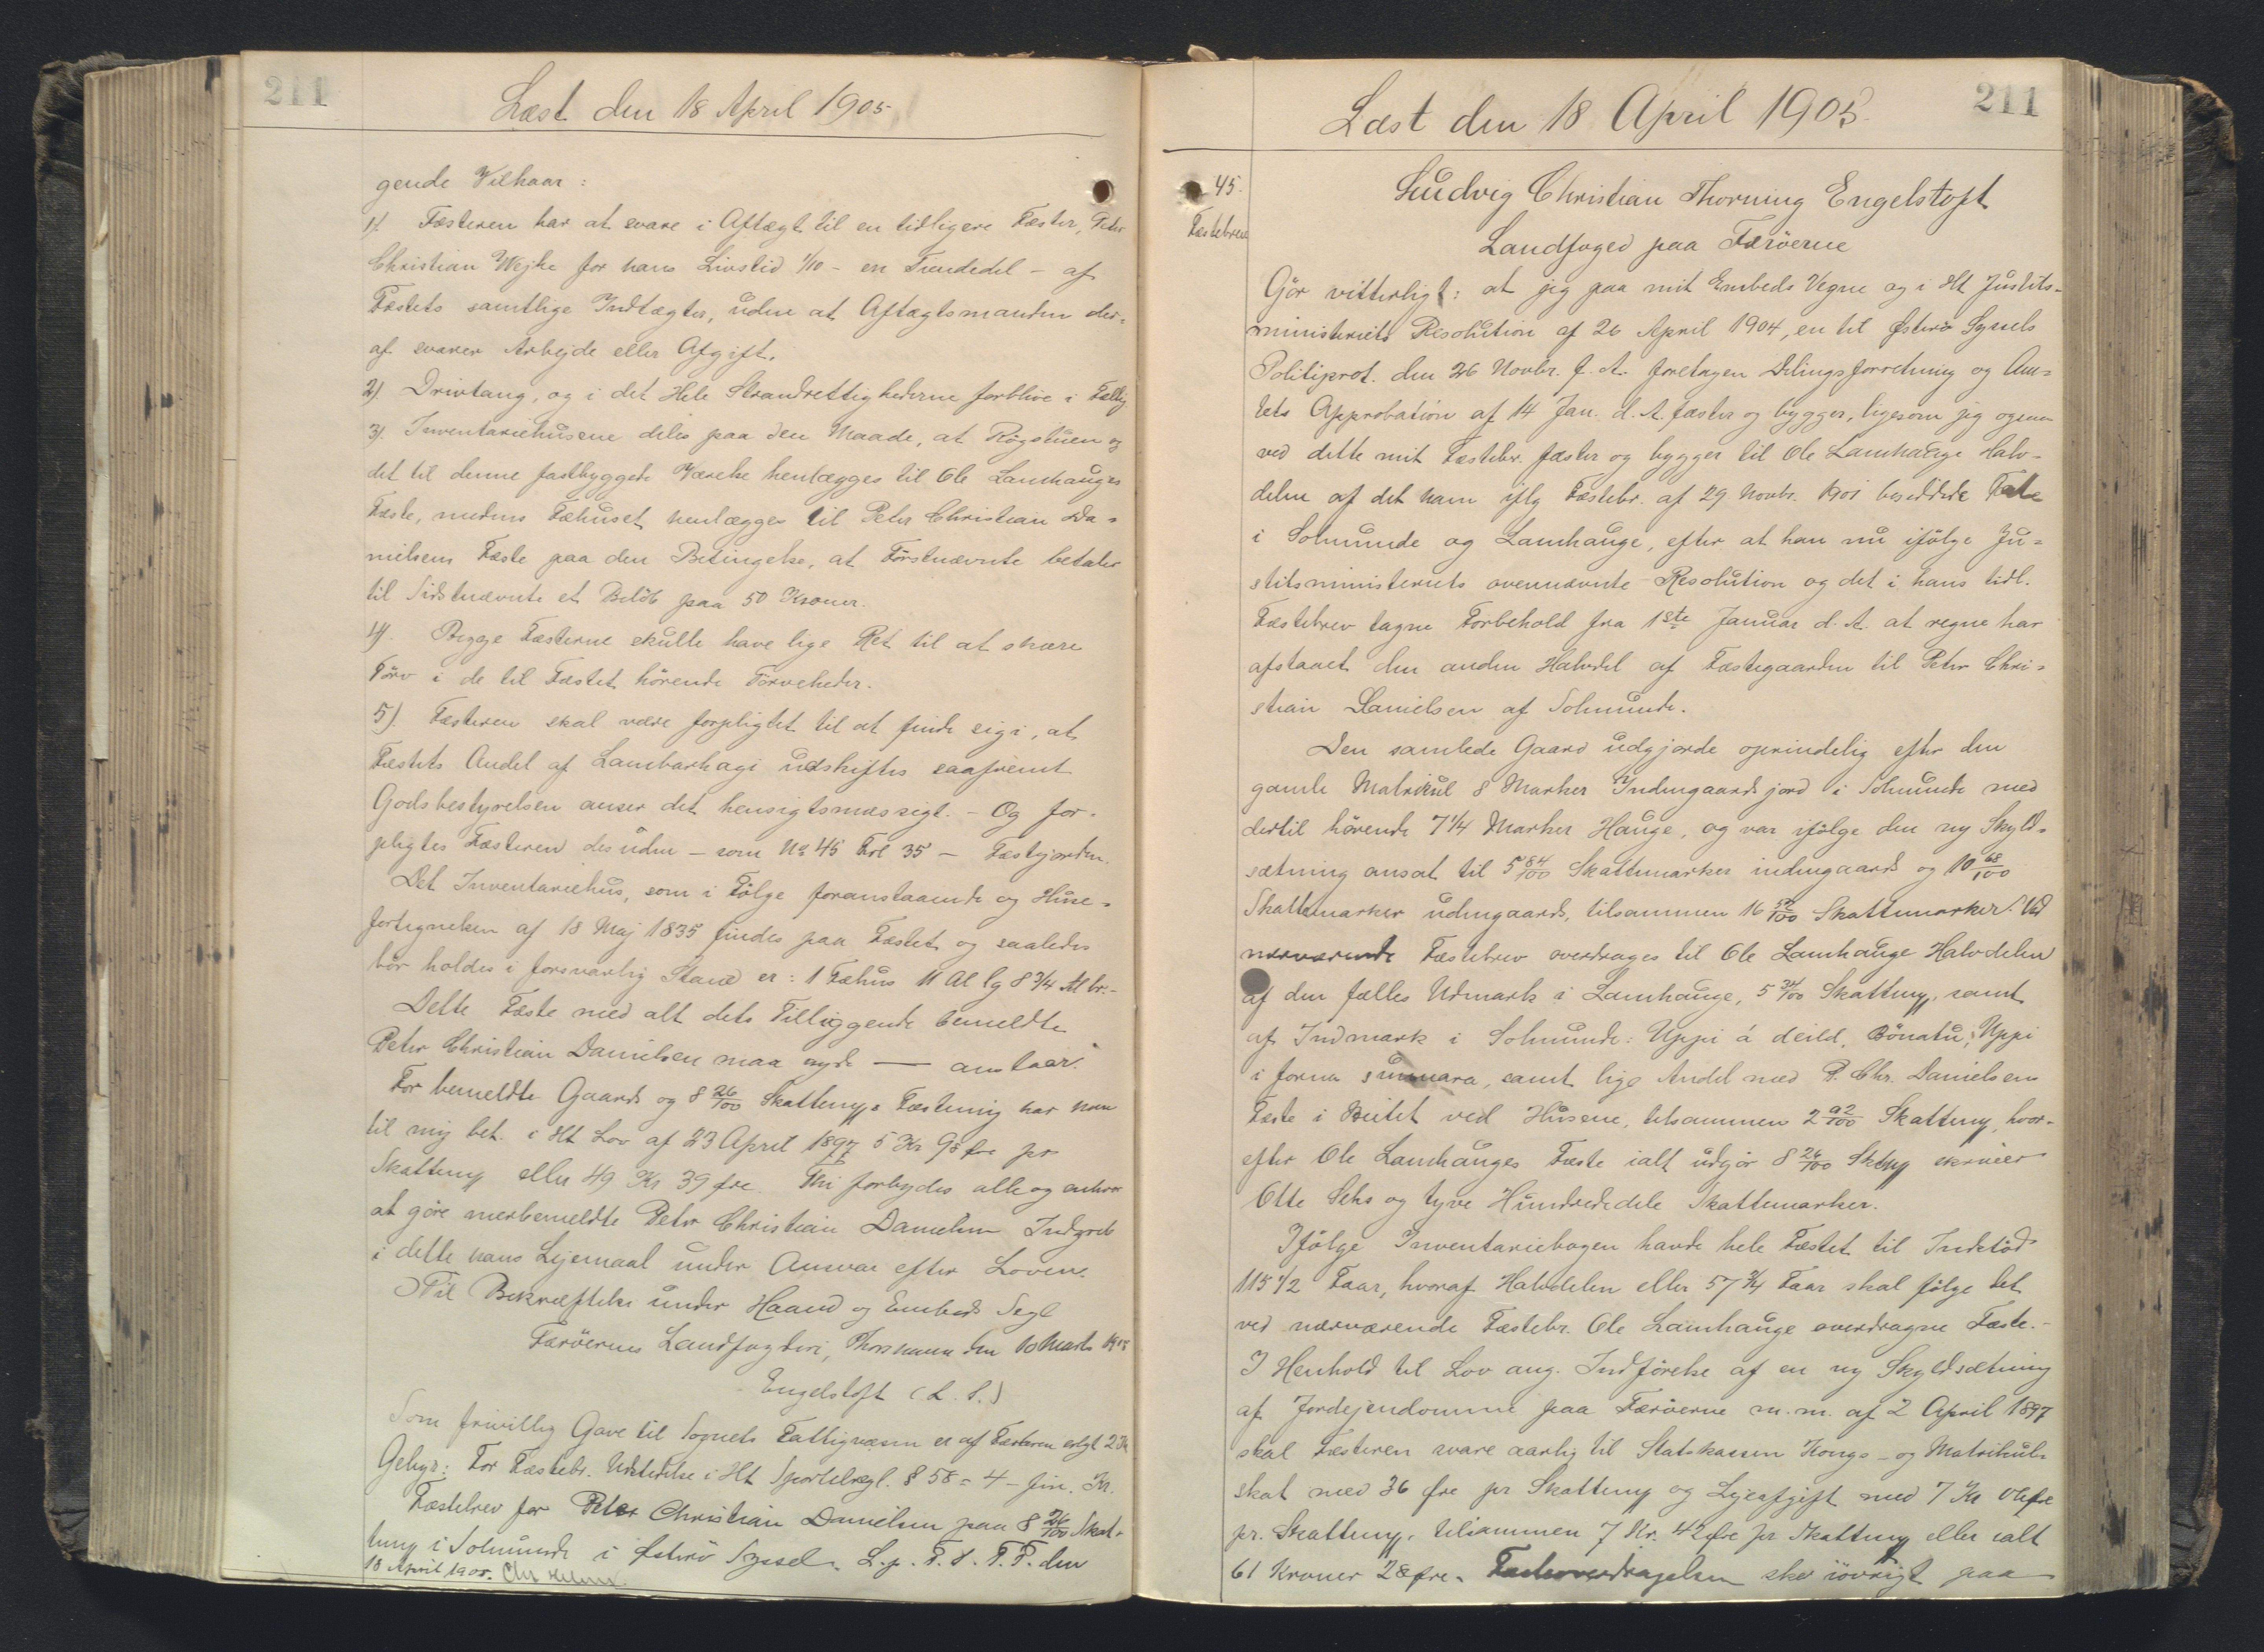 211
Læst den 18 April 1905
gende Vilkaar:
1). Fæsteren har at svare i Aftægt til en tidligere Fæster, Peter
Christian Wejhe for hans Livstid 1/10 - en Tiendedel - af
Fæstets samtlige Indtægter, uden at Aftægtsmanden der-
af svarer Arbejde eller Afgift.
2) Drivtang, og i det Hele Strandrettighederne forblive i Fællig
3) Inventariehusene deles paa den Maade, at Røgstuen og
det til denne fastbyggede Værelse henlægges til Ole Lamhauges
Fæste, medens Fæhuset henlægges til Peter Christian Da-
nielsens Fæste paa den Betingelse, at Førstnævnte betaler
til Sidstnævnte et Beløb paa 50 Kroner.
4). Begge Fæsterne skulle have lige Ret til at skære
Tørv i de til Fæstet hörende Törveheder.
5). Fæsteren skal være forpligtet til at finde sig i, at
Fæstets Andel af Lambarhagi udskiftes saafremt
Godsbestyrelsen anser det hensigtsmæssigt. - Og for-
pligtes Fæsteren desuden - som No 45 Fol 35 - Fæstejorden.
Det Inventariehus, som i Fölge foranstaaende og Huse-
fortegnelsen af 18 Maj 1835 findes paa Fæstet og saaledes
bör holdes i forsvarlig Stand er: 1 Fæhus 11 Al lg 8 3/4 Al br.-
Dette Fæste med alt dets Tilliggende bemeldte
Peter Christian Danielsen maa nyde — anstaar.
For bemeldte Gaards og 8 26/100 Skattemp Fæstning har han
til mig bet. i Ht Lov af 23 April 1897 5 Kr 98 Øre pr
Skattemp eller 49 Kr 39 Øre. Thi forbydes alle og enhver
at göre merbemeldte Peter Christian Danielsen Indgreb
i dette hans Lejemaal under Ansvar efter Loven.
Til Bekræftelse under Haand og Embeds Segl
Færöernes Landfogderi, Thorshavn den 10 Marts 1905
Engelstoft (L.S.)
Som frivillig Gave til Sognets Fattigvæsen er af Fæsteren erlagt 2 Kr
Gebyr: For Fæstebr. Udstedelse i Ht Sportelregl. § 58 = 4 - fire. Kr.
Fæstebrev for Peter Christian Danielsen paa 8 26/100 Skat-
temp i Solmunde i Østerö Syssel. L.p. F.S. T.P. den
18 April 1905.
211
Læst den 18 April 1905.
45.
Fæstebrev
Ludvig Christian Thorning Engelstoft
Landfoged paa Færöerne
Gör vitterligt: at jeg paa mit Embeds Vegne og i Ht Justits-
ministeriets Resolution af 26 April 1904, en til Østerö Syssels
Politiprot. den 26 Novbr. f. A. foretagen Delingsforretning og Am-
tets Approbation af 14 Jan. d. A. fæster og bygger, ligesom jeg ogsaa
ved dette mit Fæstebr. fæster og bygger til Ole Lamhauge Halv-
delen af det ham iflg Fæstebr. af 29 Novbr. 1901 besiddede Fæste
i Solmunde og Lamhauge, efter at han nu ifölge Ju-
stitsministeriets ovennævnte Resolution og det i hans tidl.
Fæstebrev tagne Forbehold fra 1ste Januar d. A. at regne har
afstaaet den anden Halvdel af Fæstegaarden til Peter Chri-
stian Danielsen af Solmunde.
Den samlede Gaard udgjorde oprindelig efter den
gamle Matrikul 8 Marker Indengaardsjord i Solmunde med
dertil hörende 7 1/4 Marker Hauge, og var ifölge den ny Skyld-
sætning ansat til 5 84/100 Skattemarker indengaards og 10 68/100
Skattemarker udengaards, tilsammen 16 52/100 Skattemarker. Ved
nærværende Fæstebrev overdrages til Ole Lamhauge Halvdelen
af den fælles Udmark i Lamhauge, 5 34/100 Skattemp, samt
af Indmark i Solmunde: Uppi á deild, Bönatu, Uppi
i forna sunnara, samt lige Andel med P. Chr. Danielsens
Fæste i Beitet ved Husene, tilsammen 2 92/100 Skattemp, hvor-
efter Ole Lamhauges Fæste ialt udgör 8 26/100 Sktmp skriver
Otte Seks og tyve Hundrededele Skattemarker.
Ifölge Inventariebogen havde hele Fæstet til Indstöd
115 1/2 Faar, hvoraf Halvdelen eller 57 3/4 Faar skal fölge det
ved nærværende Fæstebr. Ole Lamhauge overdragne Fæste.-
I Henhold til Lov ang. Indförelse af en ny Skyldsætning
af Jordejendomme paa Færöerne m.m. af 2 April 1897
skal Fæsteren svare aarlig til Statskassen Kongs- og Matrikuls
skat med 36 Øre pr Skattemp og Lejeafgift med 7 Kr 06 Øre
pr. Skattemp, tilsammen 7 Kr. 42 Øre pr Skattemp eller ialt
61 Kroner 28 Øre. Fæsteoverdragelsen sker iövrigt paa